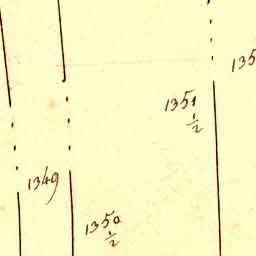 135
1351
1/2
1349
1350
1/2